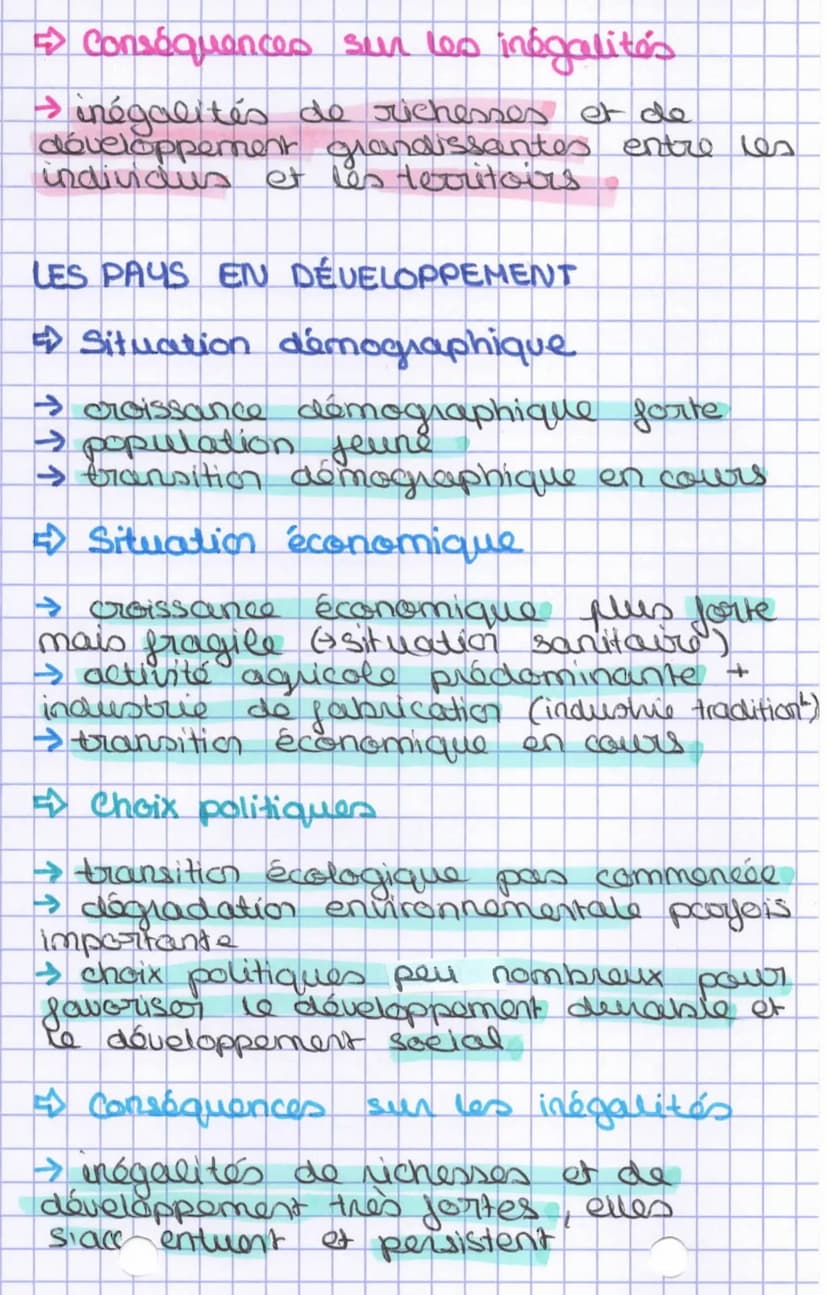 ⇨ Conséquences sur les inégalités
→ inégalités de richesses et de
développement grandissantes entre les
individus et les territoirs
LES PAYS EN DÉVELOPPEMENT
⇨ Situation démographique
→ croissance démographique forte
→ population jeune
→ transition démographique en cours
⇨ Situation économique
→ croissance économique plus forte
mais fragile (↔situation sanitaire)
→ activité agricole prédominante +
industrie de fabrication (industrie traditionᴸ)
→ transition économique en cours
⇨ Choix politiques
→ transition écologique pas commencée
→ dégradation environnementale parfois
importante
→ choix politiques peu nombreux pour
favoriser le développement durable et
le développement social
⇨ Conséquences sur les inégalités
→ inégalités de richesses et de
développement très fortes, elles
s'accentuent et persistent